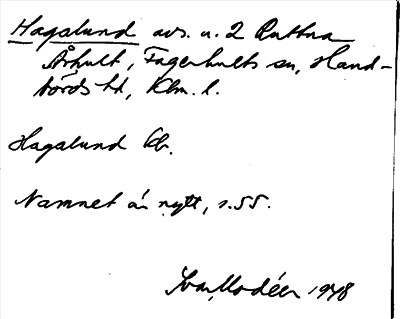 Hagalund avs. u. 2 Ruttna
Århult, Fagerhults sn, Hand-
börds hd, Klm. l.
Hagalund kb.
Namnet är nytt, s. 55.
Ivar Modéer 1948